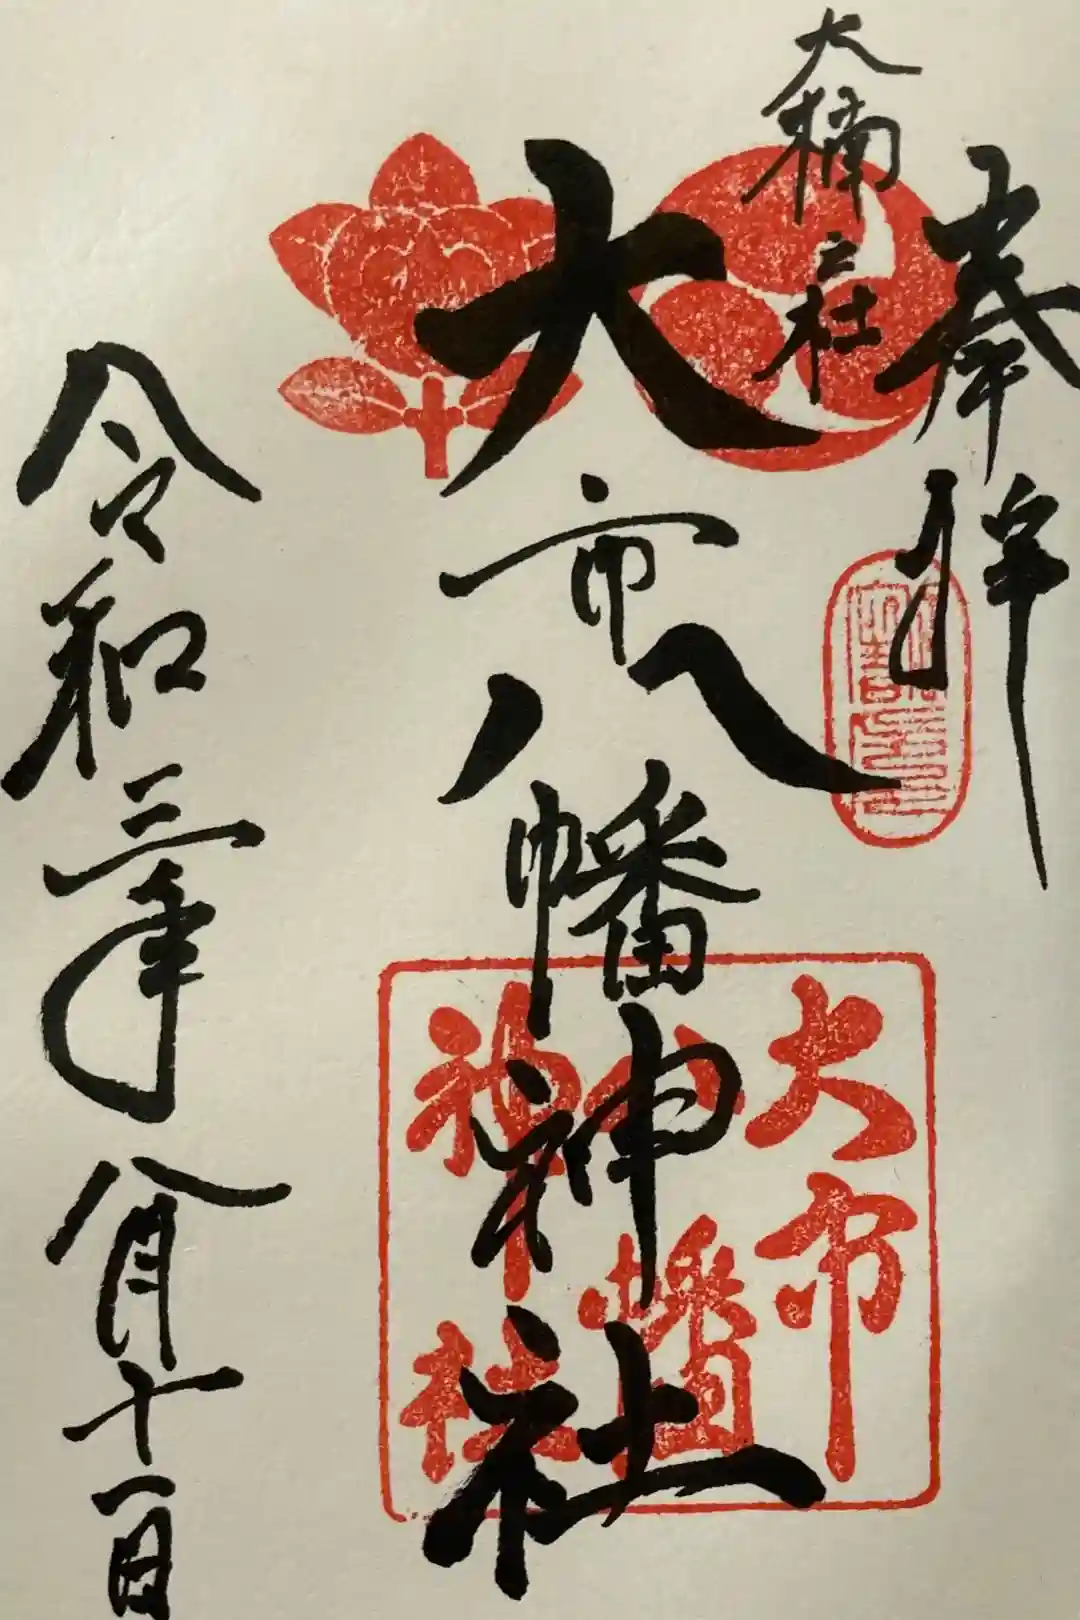 奉拝
大楠之社
大市八幡神社
大市
八幡
神社
令和三年八月十一日